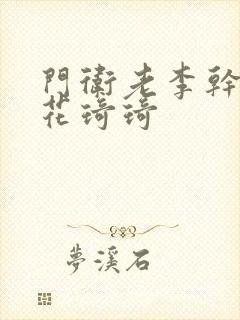 門衛老李幹
花琦琦
夢溪石